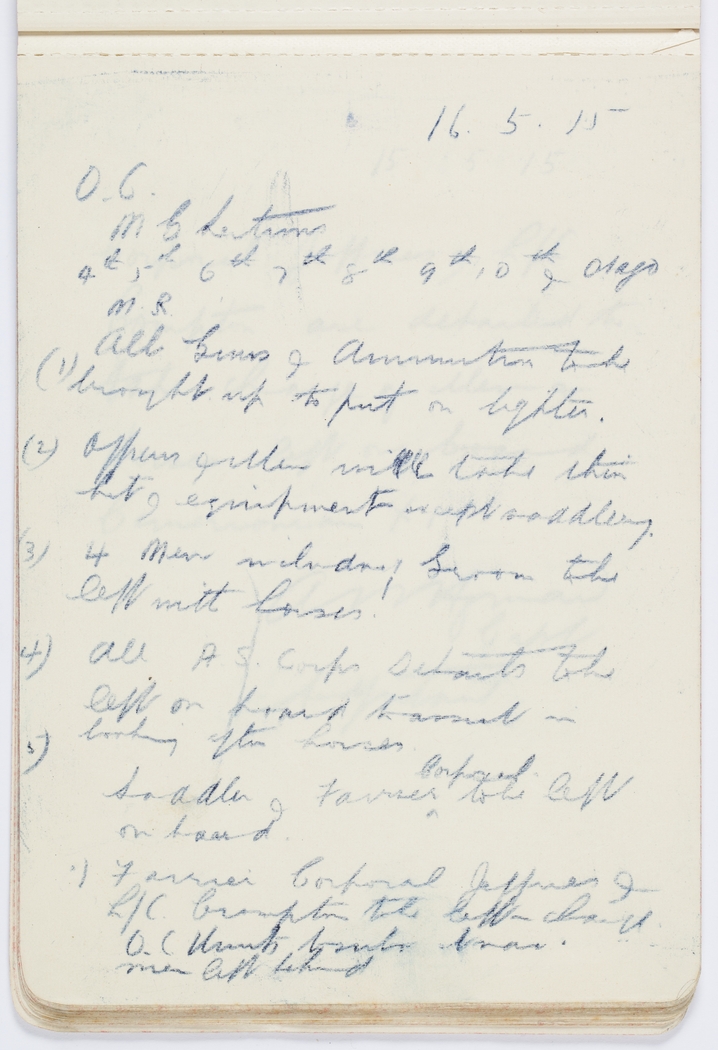 16. 5. 15
O.C.
M G Sections
4th 5th 6th 7th 8th 9th 10th & Otago
M. R.
All Guns & Ammunition to be
(1) brought up to put on lighter.
(2) Officers & Men will take their
kit & equipment except saddlery.
(3) 4 Men including Groom to be
left with horses.
4) All A.S. Corps Details to be
left on board to assist in
looking after horses.
5)
Corporal
Saddler & Farrier ^ to be left
on board.
Farrier Corporal Jeffries &
L/C. Crompton to be left in charge.
O.C Units to
men left behind